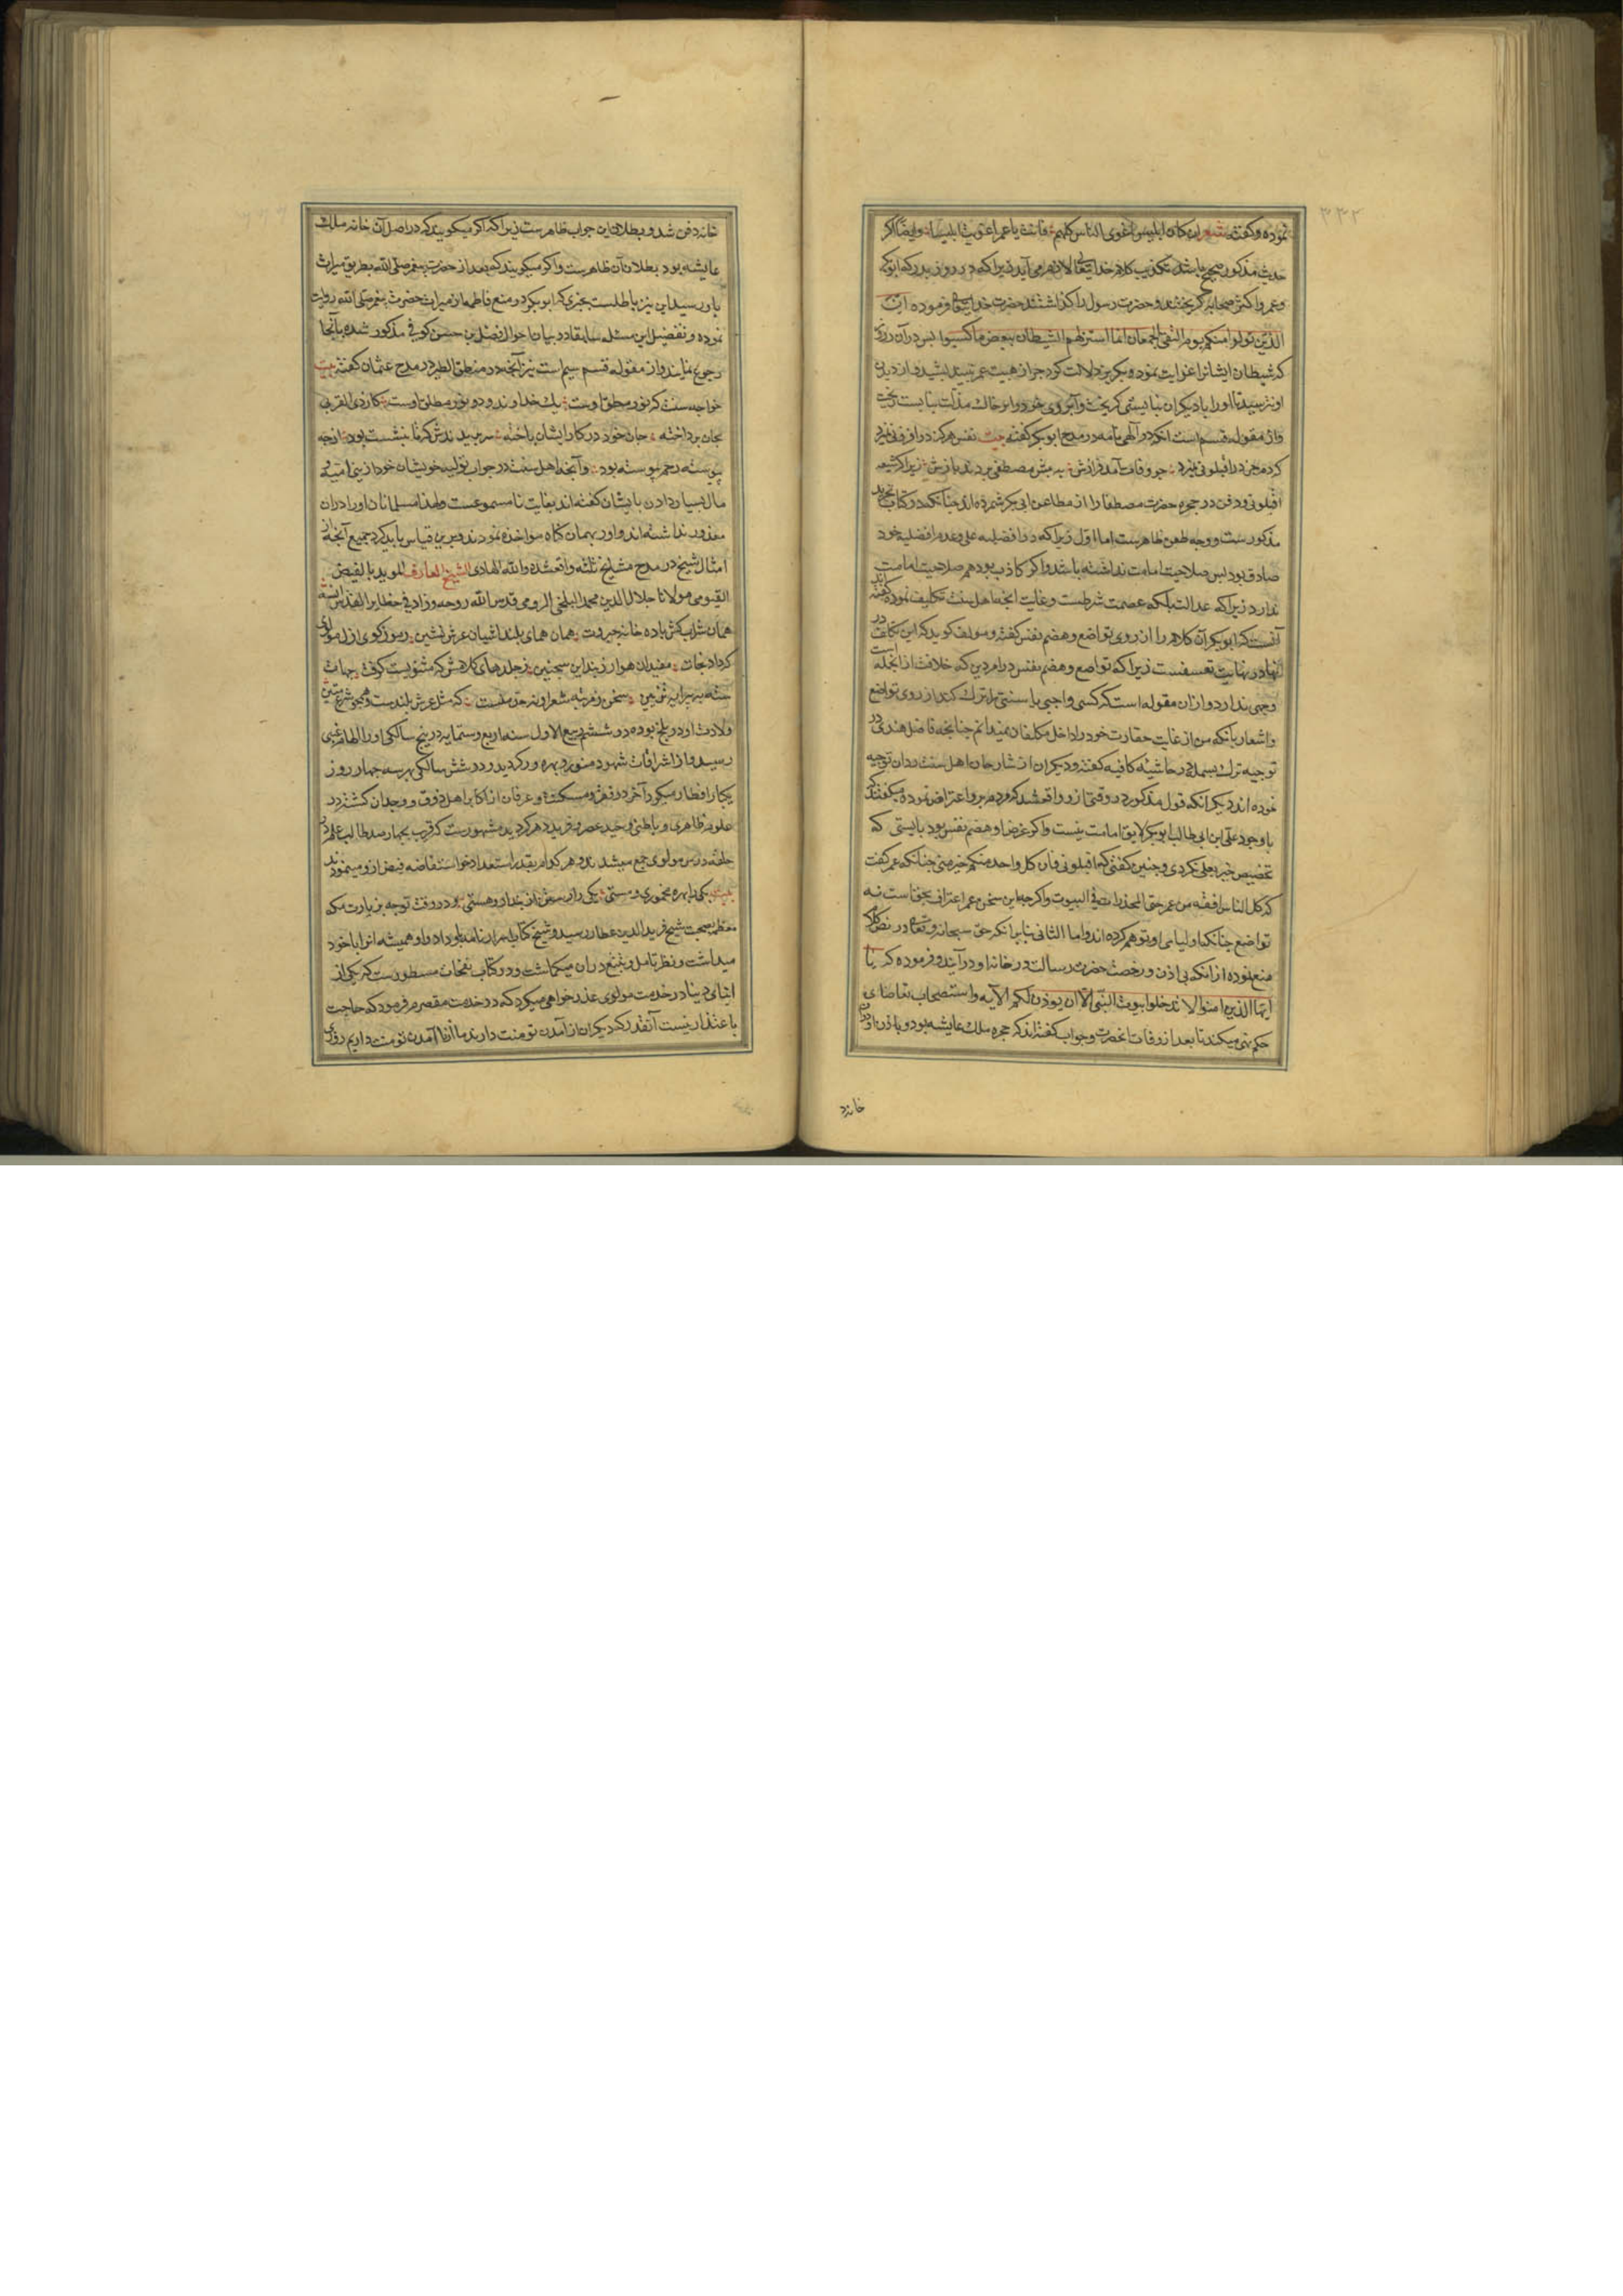 نموده و گفته شعر ان کان ابلیس اغوی الناس کلهم فانت یا عمر اغویت ابلیسا و ایضا اگر
حدیث مذکور صحیح باشد تکذیب کلام خدایتعالی لازم می آید زیرا که در روز بدر که ابوبکر
و عمر و اکثر صحابه گریختند و حضرت رسول را گذاشتند حضرت خدایتعالی فرموده ان
الذین تولوا منکم یوم التقی الجمعان انما استزلهم الشیطان ببعض ما کسبوا پس در آن روز
که شیطان ایشانرا غوایت نموده و بگریز دلالت کرد چرا از هیبت عمر نترسید و از دیدن
او نترسید تا او را با دیگران نبایستی گریخت و آبروی خود را بر خاک مذلت نبایست ریخت
و از مقوله قسم است آنکه در الهی نامه در مدح ابوبکر گفته بیت نفس هرگز در افزونی نزد
کرد بجز در اقیلونی نزد چو وفات آمد فرازش به پیش مصطفی بردند بازش زیرا که شیعه
اقیلونی و دفن در حجره حضرت مصطفی را از مطاعن ابی بکر شمرده اند چنانکه در کتاب تجرید
مذکورست و وجه طعن ظاهرست اما اول زیرا که در افضلیه علی و عدم افضلیه خود
صادق بود پس صلاحیت امامت نداشته باشد و اگر کاذب بود هم صلاحیت امامت
ندارد زیرا که عدالت بلکه عصمت شرطست و غایت آنچه اهل سنت تکلیف نموده گفته اند
آنست که ابوبکر آن کلام را از روی تواضع و هضم نفس گفته و مولف گوید که این تکلف در
نهایت تعسفست زیرا که تواضع و هضم نفس در امر دین که خلافت از آنجمله است
وجهی ندارد و از آن مقوله است که کسی واجبی یا سنتی را ترک کند از روی تواضع
و اشعار بآنکه من از غایت حقارت خود را داخل مکلفان نمیدانم چنانچه فاضل هندی در
توجیه ترک بسمله در حاشیه کافیه گفته و دیگران از شارحان اهل سنت رد آن توجیه
نموده اند دیگر آنکه قول مذکور در وقتی ازو واقع شد که مردم برو اعتراض نموده میگفتند که
با وجود علی ابن ابی طالب ابوبکر لایق امامت نیست و اگر غرض او هضم نفس بود بایستی که
تخصیص خیر بعلی نکردی و چنین گفتی که اقیلونی فان کل واحد منکم خیر منی چنانکه عمر گفت
که کل الناس افقه من عمر حتی المخدرات فی البیوت و اگر چه این سخن عمر اعتراف بحق است نه
تواضع چنانکه اولیای او توهم کرده اند و اما الثانی بنا برآنکه حق سبحانه و تعالی در نص کلام
منع نموده از آنکه بی اذن و رخصت حضرت رسالت در خانه او درآیند و فرموده که یا
ایها الذین امنوا لا تدخلوا بیوت النبی الا ان یوذن لکم الآیه و استصحاب تقاضای
حکم نهی میکند تا بعد از وفات آنحضرت و جواب گفته اند که حجره ملک عایشه بود و باذن او در آن
خانه د
خانه دفن شد و بطلان این جواب ظاهرست زیرا که اگر میگویند که در اصل آن خانه ملک
عایشه بود بطلان آن ظاهرست و اگر میگویند که بعد از حضرت پیغمبر صلی الله بطریق میراث
باو رسید این نیز باطلست بخبری که ابوبکر در منع فاطمه از میراث حضرت پیغمبر صلی الله روایت
نموده و تفضیل این مسئله سابقا در بیان احوال فضل بن حسن کوفی مذکور شده بآنجا
رجوع نمایند و از مقوله قسم سیم است نیز آنچه در منطق الطیر در مدح عثمان گفته بیت
خواجه سنت که نور مطلق اوست بلک خداوند دو نور مطلق اوست کار ذی القربی
بجان پرداخته جان خود در کار ایشان باخته سر بریدندش که تا بنشست بود از چه
پیوسته رحم پیوسته بود و آنچه اهل سنت در جواب تولیه خویشان خود از بنی امیه و
مال بسیار دادن بایشان گفته اند بغایت نامسموعست و لهذا مسلمانان او را در آن
معذور نداشته اند و او را بهمان گناه مواخذه نمودند و برین قیاس باید کرد جمیع آنچه از
امثال شیخ در مدح مشایخ ثلثه واقع شده والله الهادی الشیخ العارف الموید بالفیض
القیومی مولانا جلال الدین محمد البلخی الرومی قدس الله روحه و زاد فی حظایر القدس انسه
همان شراب کش باده خانه جبروت همان همای بلند آشیان عرش نشین رموزگوی ازل مولوی
که داد نجات مقیدان هوا را ز بند این سجین ز جلدهای کلامش که مثنویست گرفت جهات
سته پیرایه تزیین سخن ز مرتبه شعر او نه حد منست که مثل عرش بلندست و همچو شرع متین
ولادت او در بلخ بوده در ششم ربیع الاول سنه اربع و ستمایه در پنج سالگی او را الهام غیبی
رسید و از اشراقات شهود منور و بهره ور گردید و در شش سالگی هر سه چهار روز
یکبار افطار میکرد آخر در فقر و مسکنت و عرفان از اکابر اهل ذوق و وجدان گشته در
علوم ظاهری و باطنی وحید عصر و فرید دهر گردید مشهورست که قریب بچهارصد طالب علم در
حلقه درس مولوی جمع میشدند و هر کدام بقدر استعداد خود استفاضه فیض ازو مینمودند
بیت یکی را بهره مخموری و مستی یکی را رستن از پندار و هستی و در وقت توجه بزیارت مکه
معظمه بصحبت شیخ فرید الدین عطار رسید و شیخ کتاب اسرار نامه باو داد و او همیشه آنرا با خود
میداشت و نظر تامل و تتبع در آن میگماشت و در کتاب نفحات مسطورست که یکی از
ابنای دنیا در خدمت مولوی عذر خواهی میکرد که در خدمت مقصرم فرمود که حاجت
باعتذار نیست آنقدر که دیگران از آمدن تو منت دارند ما از ناآمدن تو منت داریم روزی